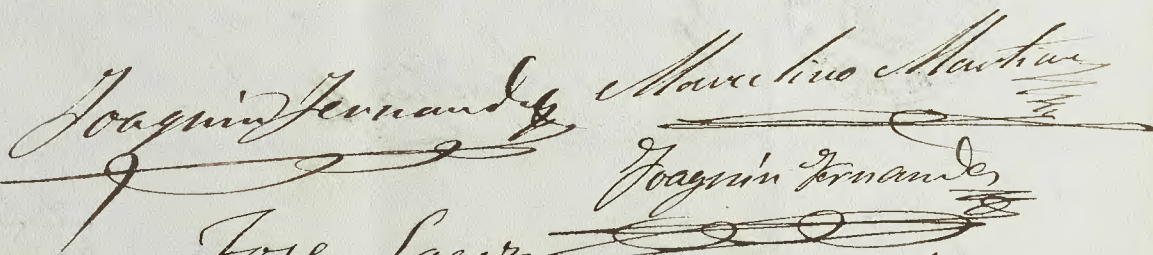 Joaquin Fernandez
Marcelino Martinez
Joaquin Fernandez
Jose